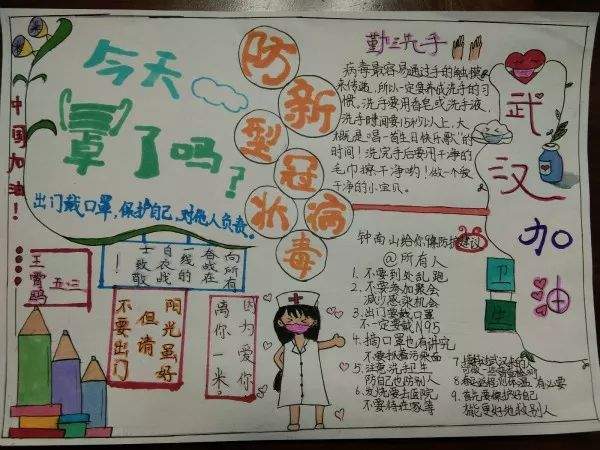 中国加油！
今天
罩了吗？
出门戴口罩，保护自己，对他人负责。
防新型冠状病毒
勤洗手
病毒最容易通过手的触摸
来传递，所以一定要养成洗手的习
惯。洗手要用香皂或洗手液，
洗手时间要15秒以上，大
概是“唱一首生日快乐歌”的
时间！洗完手后要用干净的
毛巾擦干净哟！做一个爱
干净的小宝贝。
武汉加油
卫生
向所有
奋战在
一线的
白衣战
士致敬
！
五、二
阳光虽好
但请
不要出门
因为爱你
离你一米？
钟南山给你像防护建议
@所有人
1、不要到处乱跑
2、不要参加聚会
减少感染机会
3、出门要戴口罩
不一定要戴N95
4、摘口罩也有讲究
不要挨着污染面
5、注意洗手卫生
防自己也防别人
6、发烧要去医院
不要待在家等
8、测体温 有必要
9、首先要保护好自己
才能更好地救别人